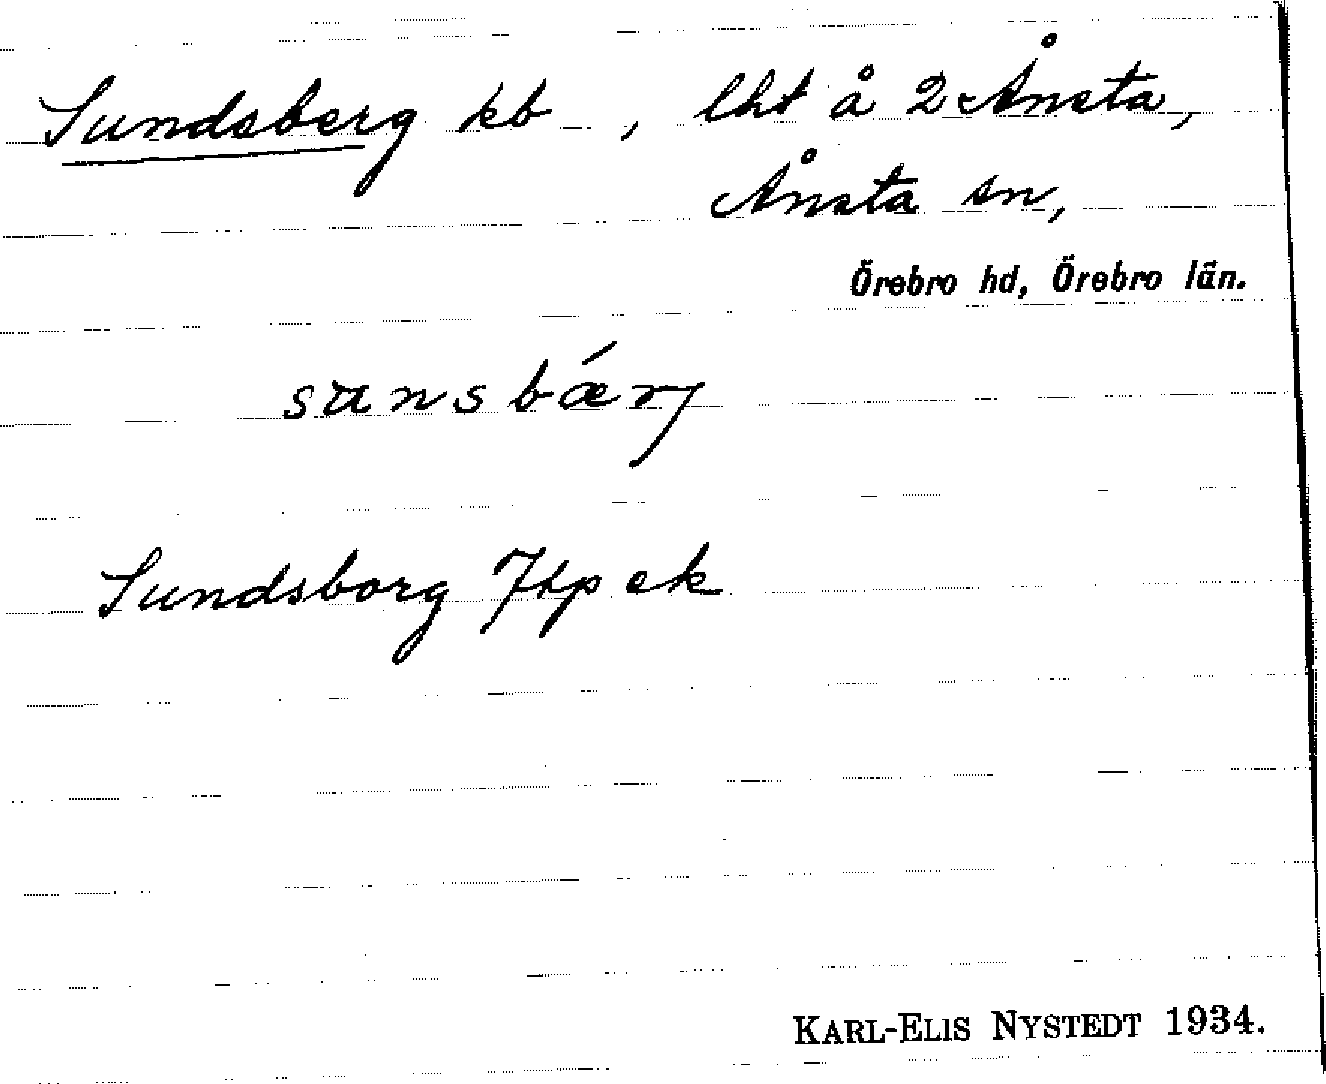 Sundsberg kb, lht å 2 Ånsta,
Ånsta sn,
Örebro hd, Örebro län.
sunsbǽrj
Sundsborg Jtp ek
KARL-ELIS NYSTEDT 1934.